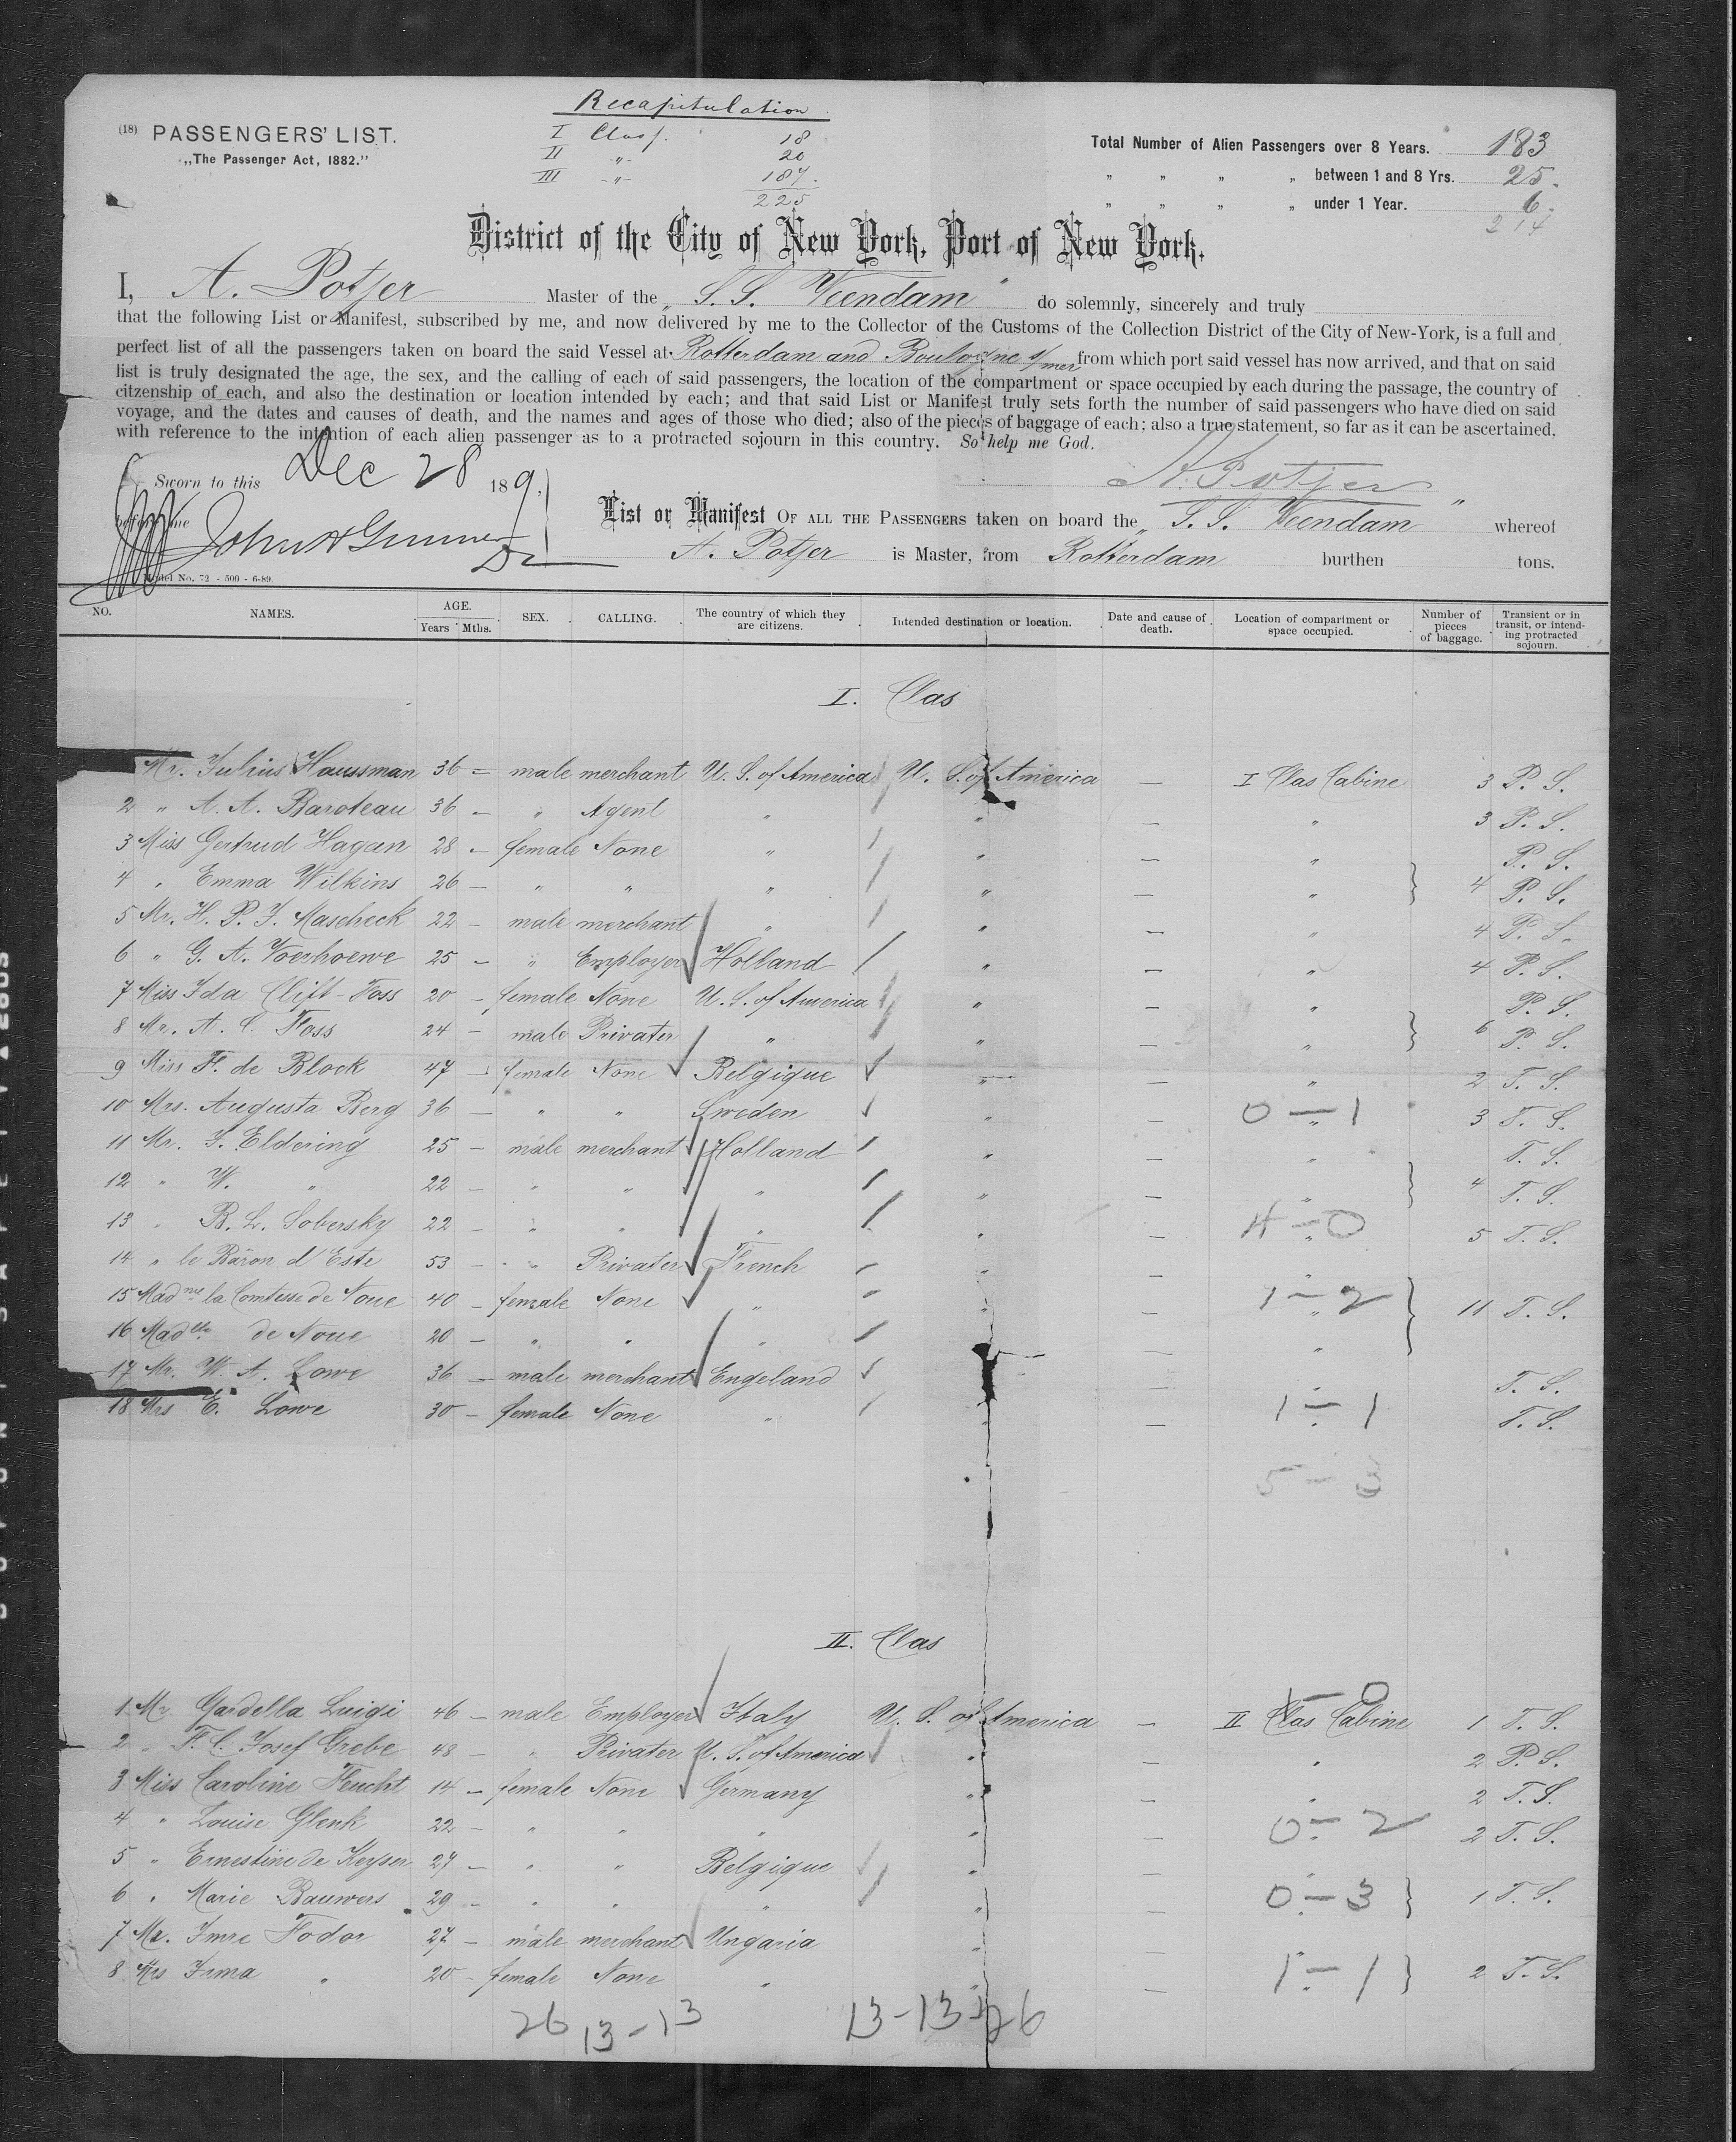 Recapitulation
I Class. 18
II -„- 20
III -„- 187.
225
(18) PASSENGERS' LIST.
„The Passenger Act, 1882."
Total Number of Alien Passengers over 8 Years. 183
„ „ „ „ between 1 and 8 Yrs. 25.
„ „ „ „ under 1 Year. 6.
214
District of the City of New York, Port of New York.
I, A. Potjer Master of the „S. S. Veendam" do solemnly, sincerely and truly
that the following List or Manifest, subscribed by me, and now delivered by me to the Collector of the Customs of the Collection District of the City of New-York, is a full and
perfect list of all the passengers taken on board the said Vessel at Rotterdam and Boulogne s/mer from which port said vessel has now arrived, and that on said
list is truly designated the age, the sex, and the calling of each of said passengers, the location of the compartment or space occupied by each during the passage, the country of
citzenship of each, and also the destination or location intended by each; and that said List or Manifest truly sets forth the number of said passengers who have died on said
voyage, and the dates and causes of death, and the names and ages of those who died; also of the pieces of baggage of each; also a true statement, so far as it can be ascertained,
with reference to the intention of each alien passenger as to a protracted sojourn in this country. So help me God.
Sworn to this Dec 28 189,
A. Potjer
before me
List or Manifest OF ALL THE PASSENGERS taken on board the „S. S. Veendam" whereof
A. Potjer is Master, from Rotterdam burthen tons.
Model No. 72 - 500 - 6-89.
NO. NAMES. AGE. Years Mths. SEX. CALLING. The country of which they are citizens. Intended destination or location. Date and cause of death. Location of compartment or space occupied. Number of pieces of baggage. Transient or in transit, or intending protracted sojourn.
I. Clas
Mr. Julius Haussman 36 - male merchant U. S. of America U. S. of America — I Clas Cabine 3 P. S.
2 „ A. A. Baroteau 36 - „ Agent „ „ — „ 3 P. S.
3 Miss Gertrud Hagan 28 - female None „ „ — „ P. S.
4 „ Emma Wilkins 26 — „ „ „ „ — „ } 4 P. S.
5 Mr. H. P. J. Mascheck 22 - male merchant „ „ — „ 4 P. S.
6 „ G. A. Voerhoeve 25 - „ Employer Holland „ — „ 4 P. S.
7 Miss Ida Clift-Foss 20 - female None U. S. of America „ — „ P. S.
8 Mr. A. C. Foss 24 - male Privater „ „ — „ } 6 P. S.
9 Miss F. de Block 47 - female None Belgique „ — „ 2 T. S.
10 Mrs. Augusta Berg 36 — „ „ Sweden „ — 0 — 1 3 T. S.
11 Mr. J. Eldering 25 - male merchant Holland „ — „ T. S.
12 „ W. „ 22 — „ „ „ „ — „ } 4 T. S.
13 „ B. L. Sobersky 22 — „ „ „ „ — 4 - 0 5 T. S.
14 „ le Baron d'Este 53 — „ Privater French „ — „
15 Madme la Comtesse de Noue 40 - female None „ „ — 1 - 2 } 11 T. S.
16 Madlle de Noue 20 — „ „ „ — „
17 Mr. W. A. Lowe 36 — male merchant Engeland — „ T. S.
18 Mrs E. Lowe 30 - female None „ „ — 1 - 1 T. S.
5 - 3
II. Clas
1 - 0
1 Mr Gardella Luigi 46 - male Employer Italy U. S. of America — II Clas Cabine 1 T. S.
2 „ F. C. Josef Grebe 48 - „ Privater U. S. of America „ — „ 2 P. S.
3 Miss Caroline Feucht 14 - female None Germany „ — „ 2 T. S.
4 „ Louise Glenk 22 - „ „ „ „ — 0 - 2 2 T. S.
5 „ Ernestine de Keyser 27 - „ „ Belgique „ —
6 „ Marie Bauwers 29 - „ „ „ „ — 0 - 3 } 1 T. S.
7 Mr. Imre Fodor 27 - male merchant Ungaria „ —
8 Mrs Irma „ 20 - female None „ „ — 1 - 1 } 2 T. S.
26 13-13 13-13 26